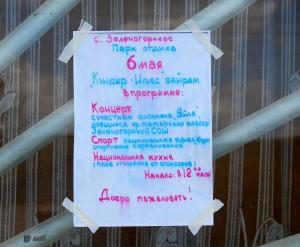 с. Зеленогорское
Парк отдиха
6 мая
"Къыдыр - Ильес" байрам
В программе:
Концерт
с участием ансамбля
учащихся кр. татарских классов
Зеленогорской СОШ
Спорт национальная борьба
спортивные соревнования
Национальная кухня
угощения от спонсоров
Начало: в 12 00 часов
Добро пожаловать!